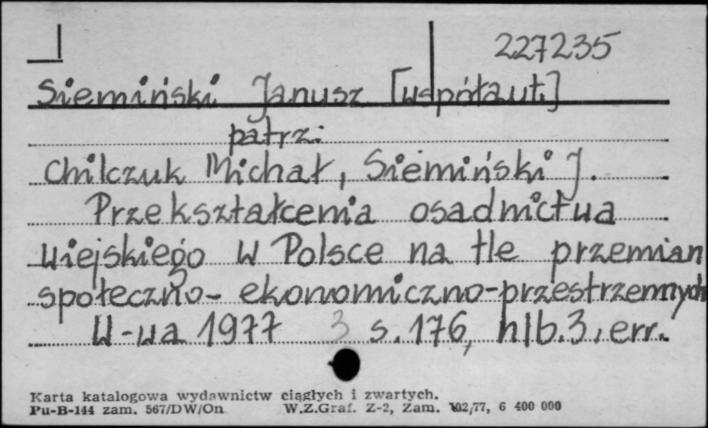 227235
Siemiński Janusz [współaut.]
patrz:
Chilczuk Michał, Siemiński J.
Przekształcenia osadnictwa
wiejskiego w Polsce na tle przemian
społeczno-ekonomiczno-przestrzennych
W-wa 1977 3 s. 176, nlb. 3, err.
Karta katalogowa wydawnictw ciągłych i zwartych.
Pu-B-144 zam. 567/DW/On W.Z.Graf. Z-2, Zam. 102/77, 6 400 000